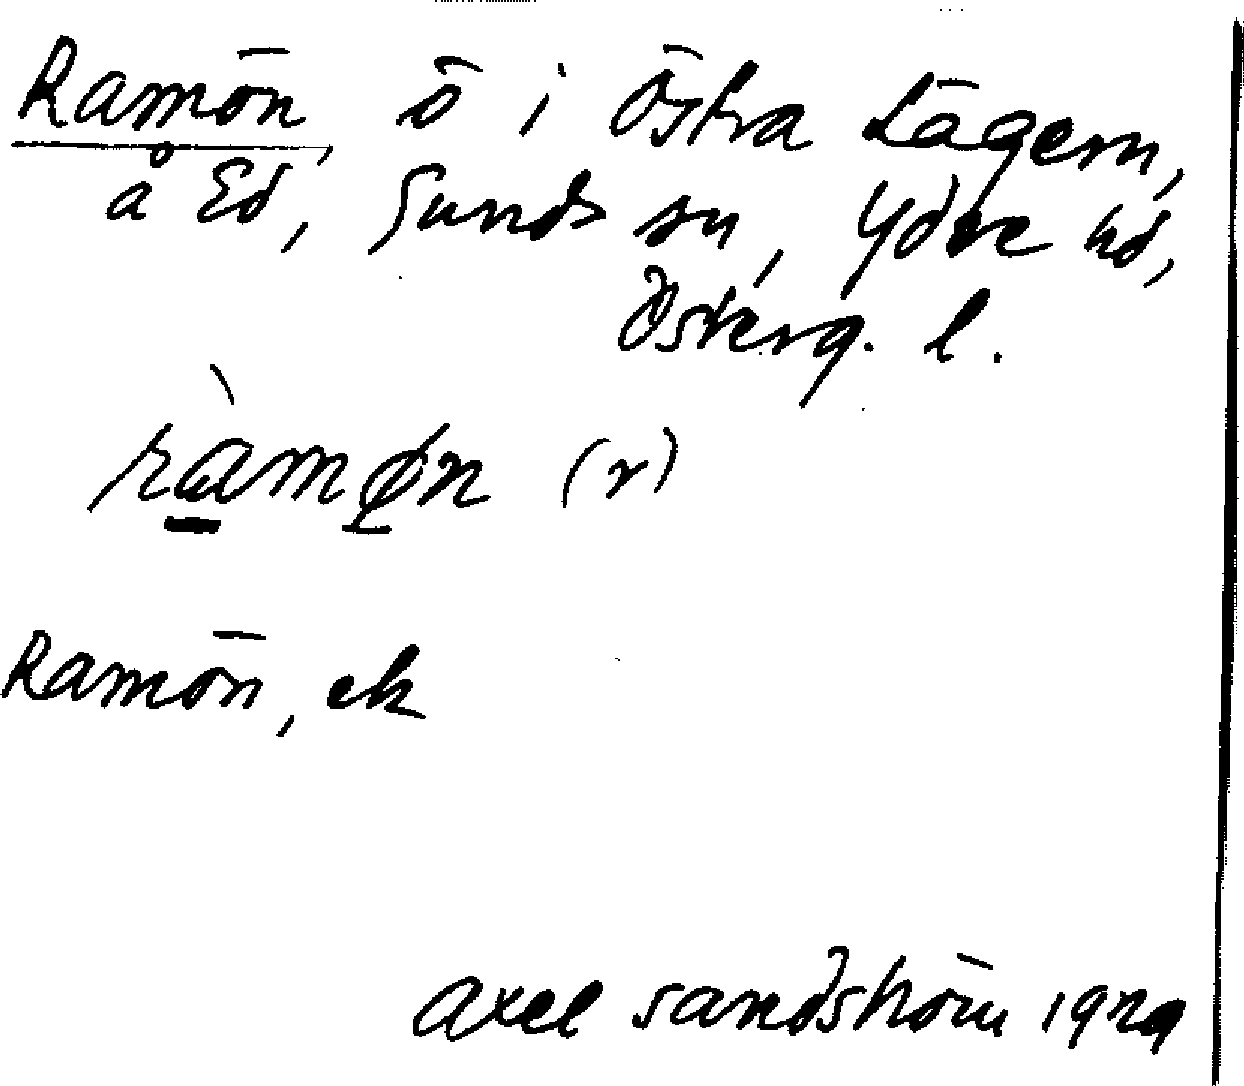 Ramön, ö i Östra Lägern,
å Ed, Sunds sn, Ydre hd,
Österg. l.
ràmøn (r)
Ramön, ek
Axel Sandström 1929